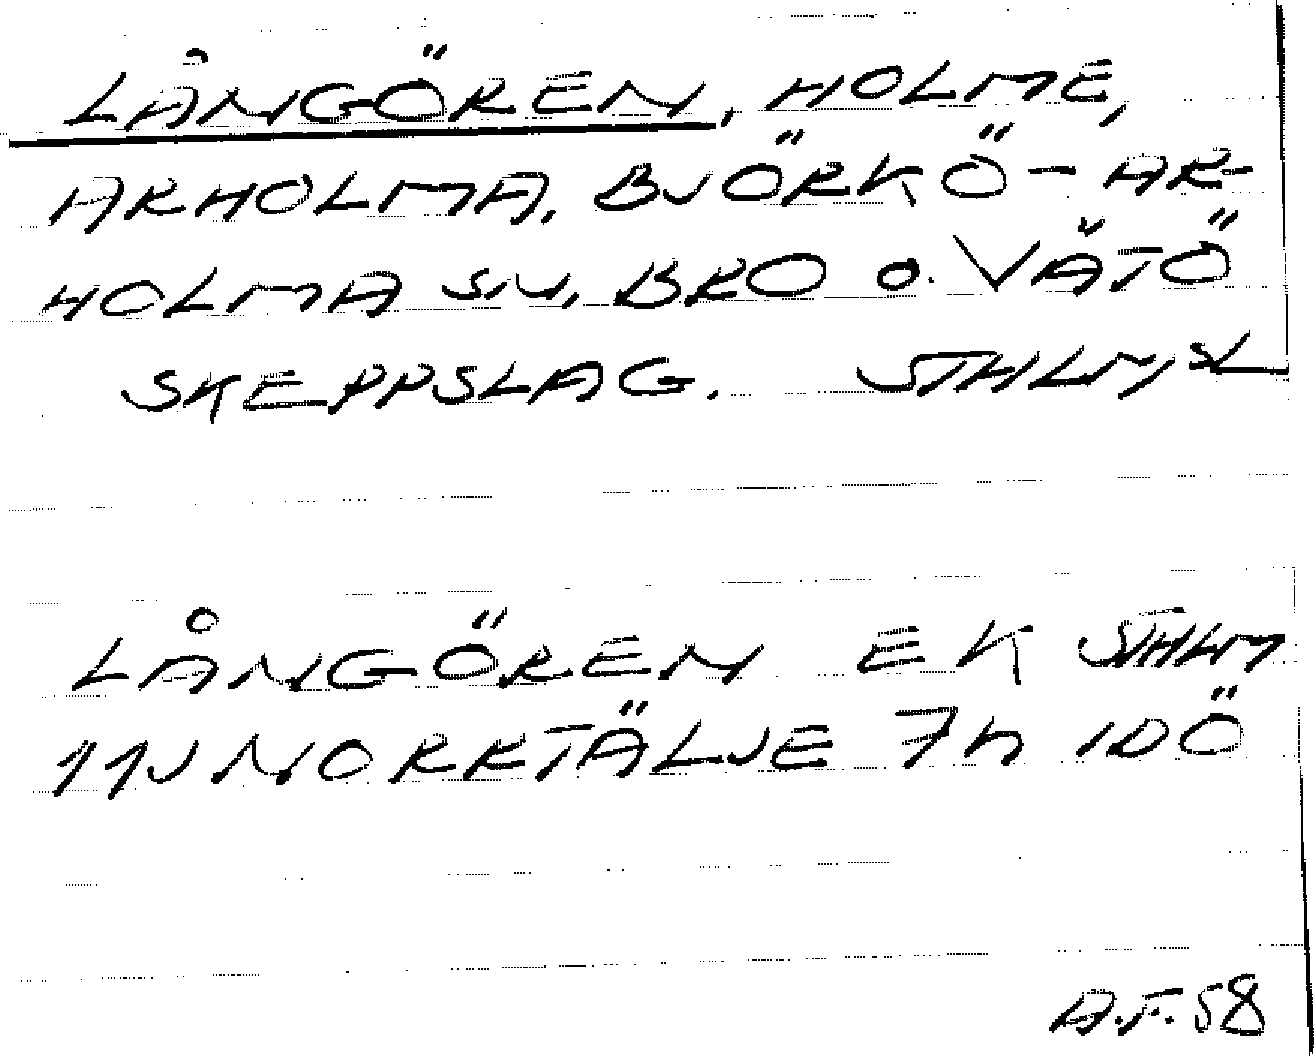 LÅNGÖREN, HOLME,
ARHOLMA, BJÖRKÖ-AR-
HOLMA SN, BRO O. VÄTÖ
SKEPPSLAG. STHLMSL
LÅNGÖREN EK STHLM
11J NORRTÄLJE 7h IDÖ
A.F. 58